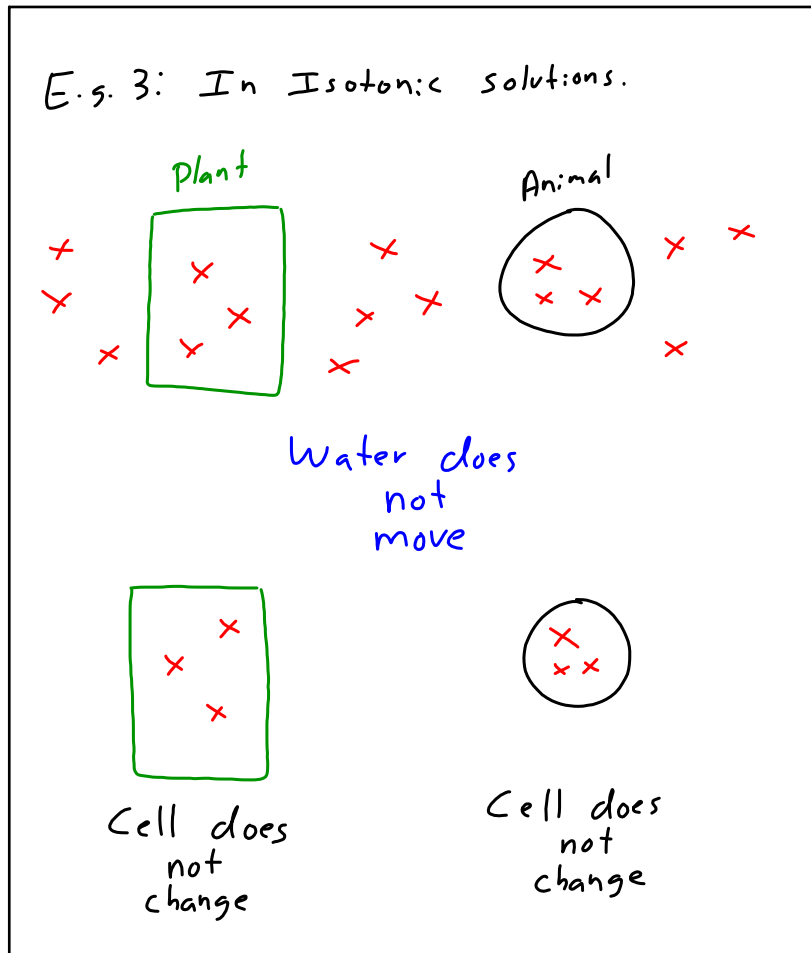 E.g. 3: In Isotonic solutions.
Plant
Animal
Water does
not
move
Cell does
not
change
Cell does
not
change